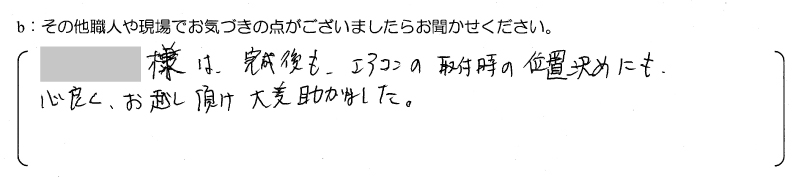 b：その他職人や現場でお気づきの点がございましたらお聞かせください。
様は、完成後も、エアコンの取付時の位置決めにも、
心良く、お越し頂け大変助かりました。